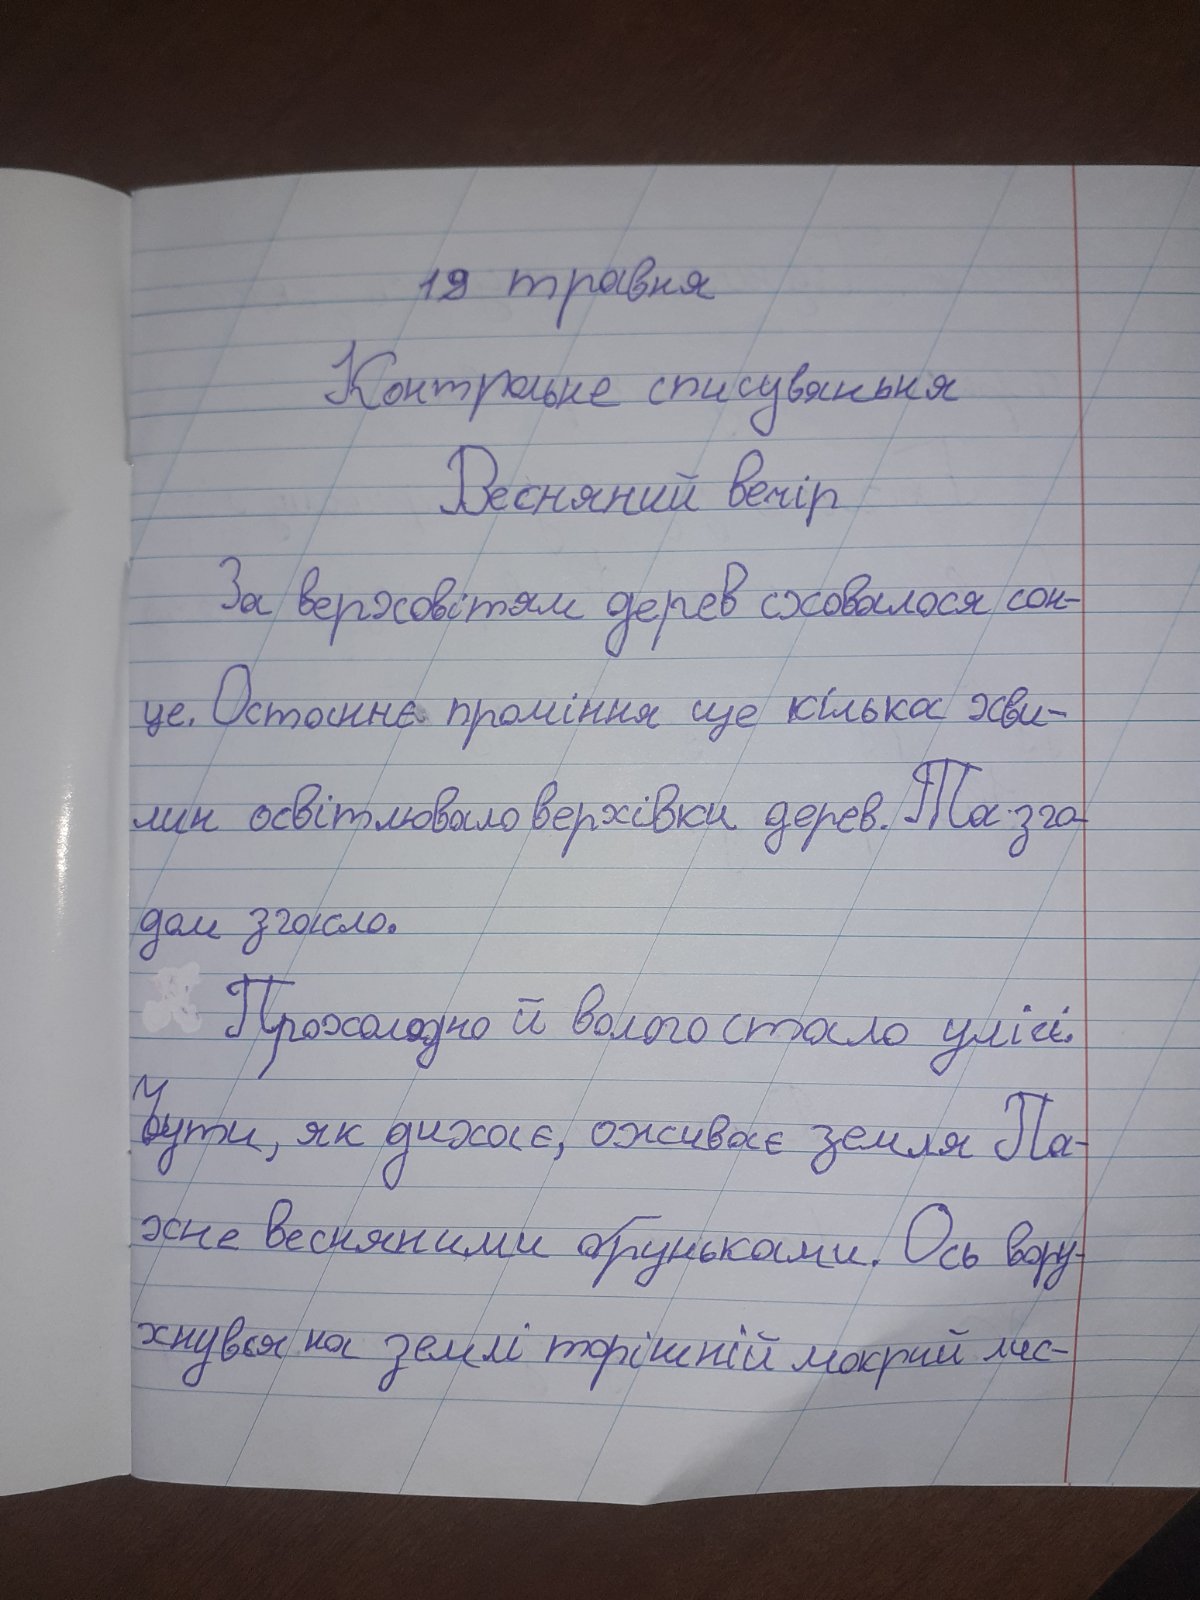 19 травня
Контрольне списуваньня
Весняний вечір
За верховітям дерев сховалося сон-
це. Останнє проміння ще кілька хви-
лин освітлювало верхівки дерев. Та зго-
дом згасло.
Прохолодно й волого стало у лісі.
Чути, як дихає, оживає земля Па-
хне весняними бруньками. Ось вору-
хнувся на землі торішній мокрий лис-